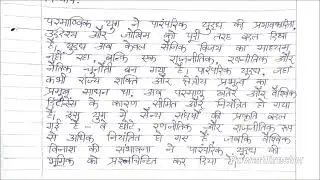 परमाण्विक युग ने पारंपरिक युद्ध की प्रभावकारिता,
उद्देश्य और जोखिम को पूरी तरह बदल दिया
है। युद्ध अब केवल सैनिक विजय का साधन
नहीं रहा, बल्कि एक राजनीतिक, रणनीतिक और
नैतिक चुनौती बन गया है। पारंपरिक युद्ध, जहां
कभी राज्य शक्ति और क्षेत्रीय प्रभुत्व का
प्रमुख साधन था, अब परमाणु खतरे और वैश्विक
के कारण सीमित और नियंत्रित हो गया
है। इस युग में सैन्य संघर्षों की प्रकृति बदल
गई है – वे छोटे, रणनीतिक और राजनीतिक रूप
से अधिक नियंत्रित हो गए हैं, जबकि वैश्विक
विनाश की संभावना ने पारंपरिक युद्ध की
भूमिका को प्रश्नचिन्हित कर दिया है।